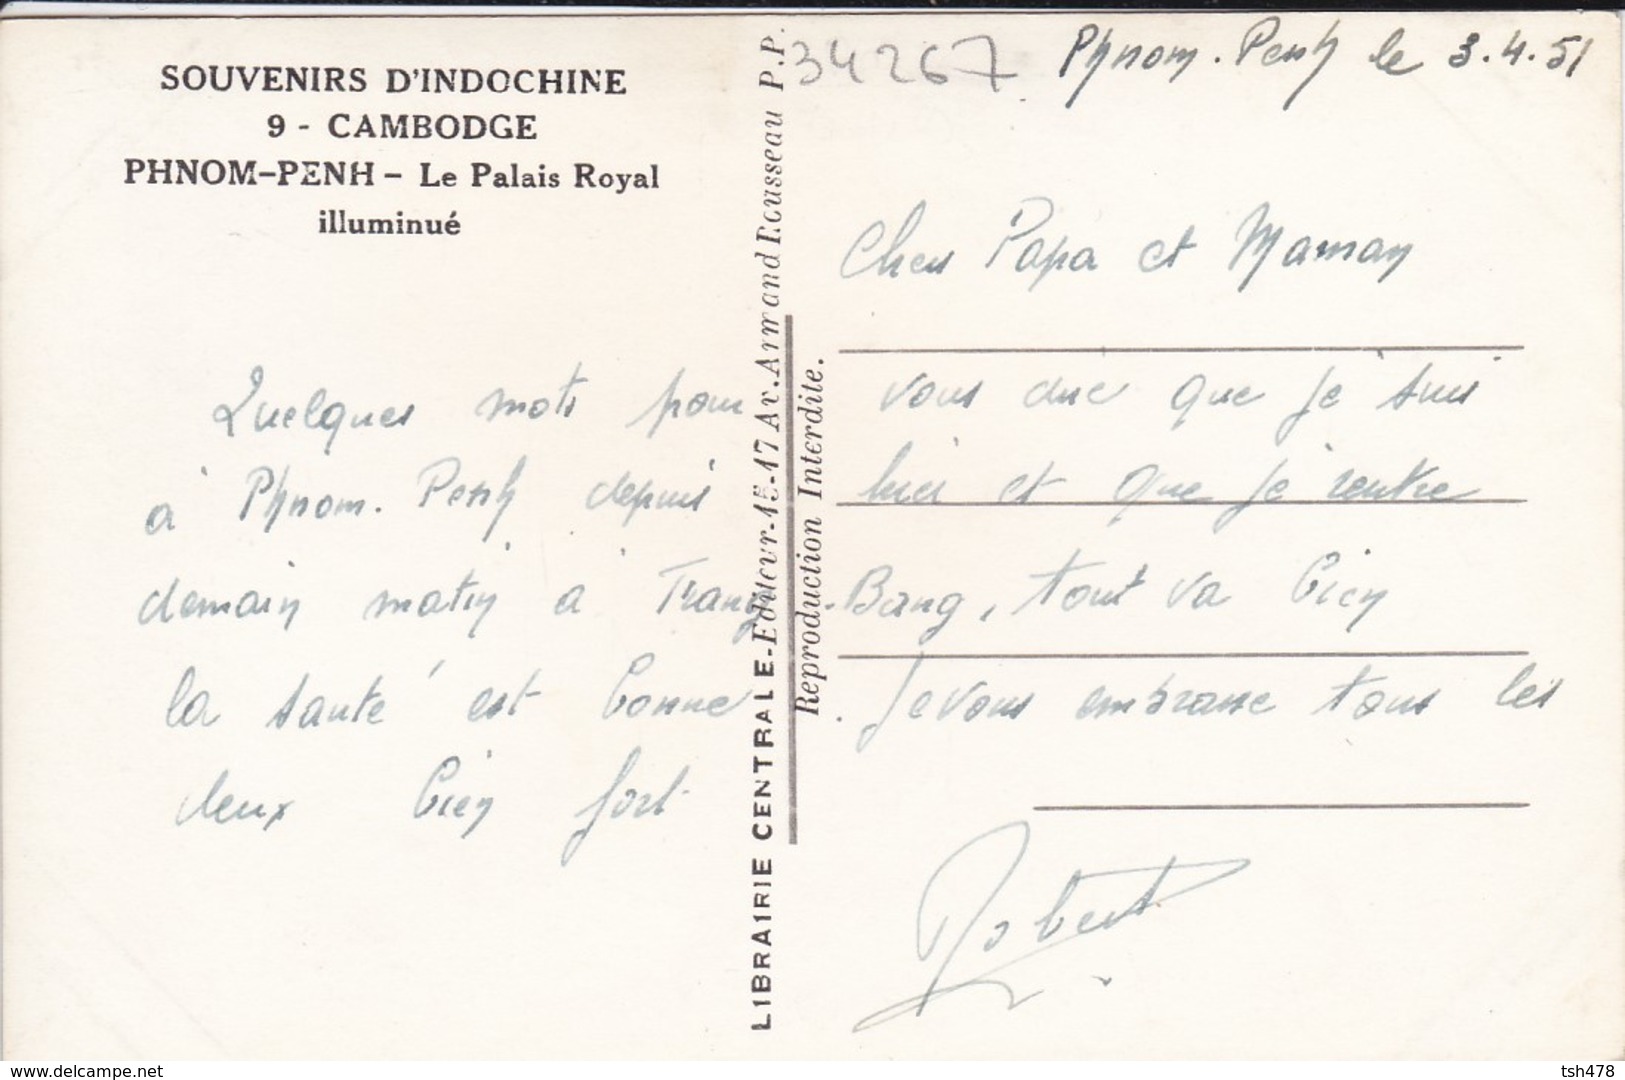 SOUVENIRS D'INDOCHINE
9 - CAMBODGE
PHNOM-PENH - Le Palais Royal
illuminué
34267
Phnom.Penh le 3.4.51
Chers Papa et Maman
Quelques mots pour vous dire que je suis
à Phnom.Penh depuis hier et que je rentre
demain matin à Trang-Bang, tout va bien
la santé est bonne. Je vous embrasse tous les
deux bien fort
Robert
LIBRAIRIE CENTRALE-Editeur-15-17 Av. Armand Rousseau P.P.
Reproduction Interdite.
www.delcampe.net
tsh478